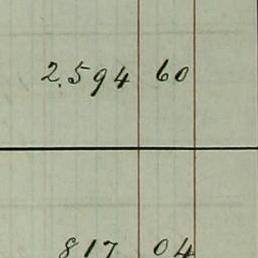 2.594 60
817 04